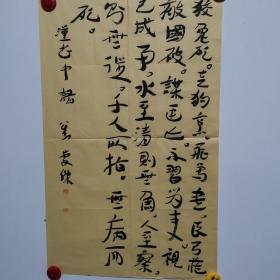 狡兔死。走狗烹。飛鳥盡。良弓藏
敵國破。謀臣亡。不習為吏。視
已成事。水至清則無魚。人至察
則無徒。千人所指。無病而
死。
漢書中語